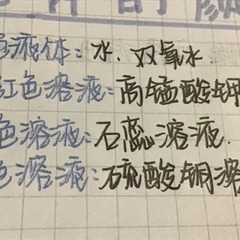 色液体:水、双氧水
红色溶液:高锰酸钾
色溶液:石蕊溶液.
色溶液:硫酸铜溶